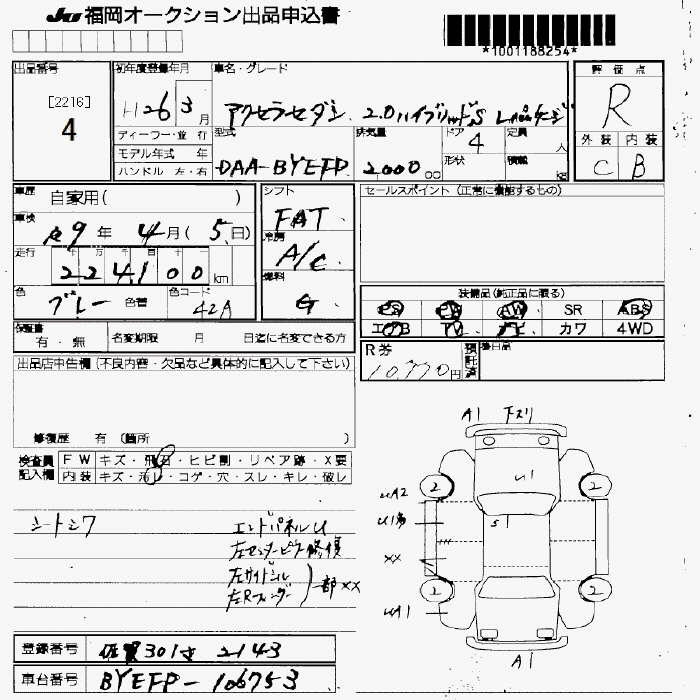 JU 福岡オークション出品申込書
*1001188254*
出品番号
[2216]
4
初年度登録年月
H26 3月
ディーラー・並行
モデル年式 年
ハンドル 左・右
車名・グレード
アクセラセダン 2.0ハイブリッドS Lパッケージ
型式
DAA-BYEFP
排気量
2000 cc
ドア 4
形状
定員 人
積載 kg
評価点
R
外装 内装
C B
車歴
自家用( )
車検
R9年 4月(5日)
走行
224,100 km
色
ブルー 色替
色コード
42A
シフト
FAT
冷房
A/C
燃料
G
セールスポイント(正常に機能するもの)
装備品(純正品に限る)
PS PW AW SR ABS
エアB TV ナビ カワ 4WD
保証書
有・無
名変期限 月 日迄に名変できる方
R券
10,770円
預託済
後日品
出品店申告欄(不良内容・欠品など具体的に記入して下さい)
修復歴 有 (箇所 )
検査員記入欄
FW キズ・飛石・ヒビ割・リペア跡・X要
内装 キズ・汚レ・コゲ・穴・スレ・キレ・破レ
シートシワ
エンドパネルU
左センターピラー修復
左サイドシル
左Rフェンダー
一部XX
A1 下スリ
2 2
U1
UA2
S1
XX
2 2
UA1
A1
登録番号 佐賀301さ 2143
車台番号 BYEFP-106753